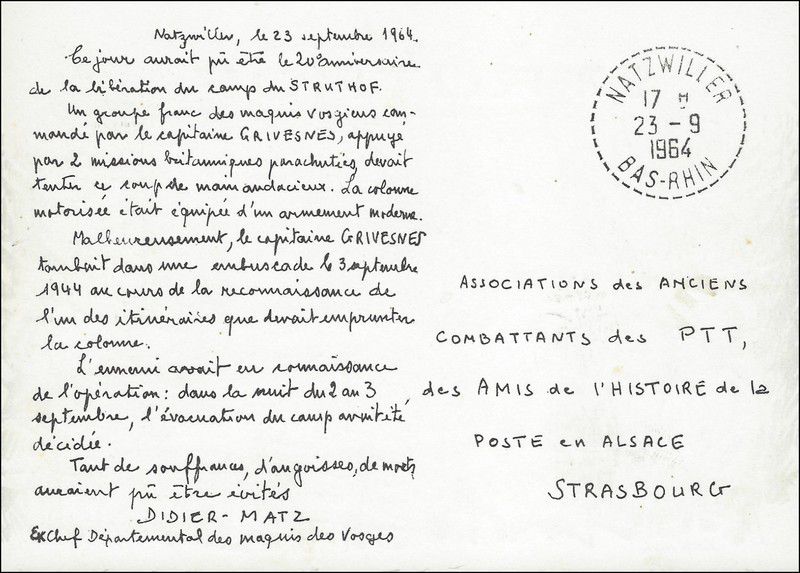 Natzwiller, le 23 septembre 1964.
Ce jour aurait pû être le 20e anniversaire
de la libération du camp du STRUTHOF.
Un groupe franc des maquis vosgiens com-
mandé par le capitaine GRIVESNES, appuyé
par 2 missions britanniques parachutées, devait
tenter ce coup de main audacieux. La colonne
motorisée était équipée d'un armement moderne.
Malheureusement, le capitaine GRIVESNES
tombait dans une embuscade le 3 septembre
1944 au cours de la reconnaissance de
l'un des itinéraires que devait emprunter
la colonne.
L'ennemi avait eu connaissance
de l'opération : dans la nuit du 2 au 3
septembre, l'évacuation du camp avait été
décidée.
Tant de souffrances, d'angoisses, de morts
auraient pû être évités
DIDIER-MATZ
Ex Chef Départemental des maquis des Vosges
NATZWILLER
17 H
23 - 9
1964
BAS-RHIN
ASSOCIATIONS des ANCIENS
COMBATTANTS des PTT,
des AMIS de l'HISTOIRE de la
POSTE en ALSACE
STRASBOURG